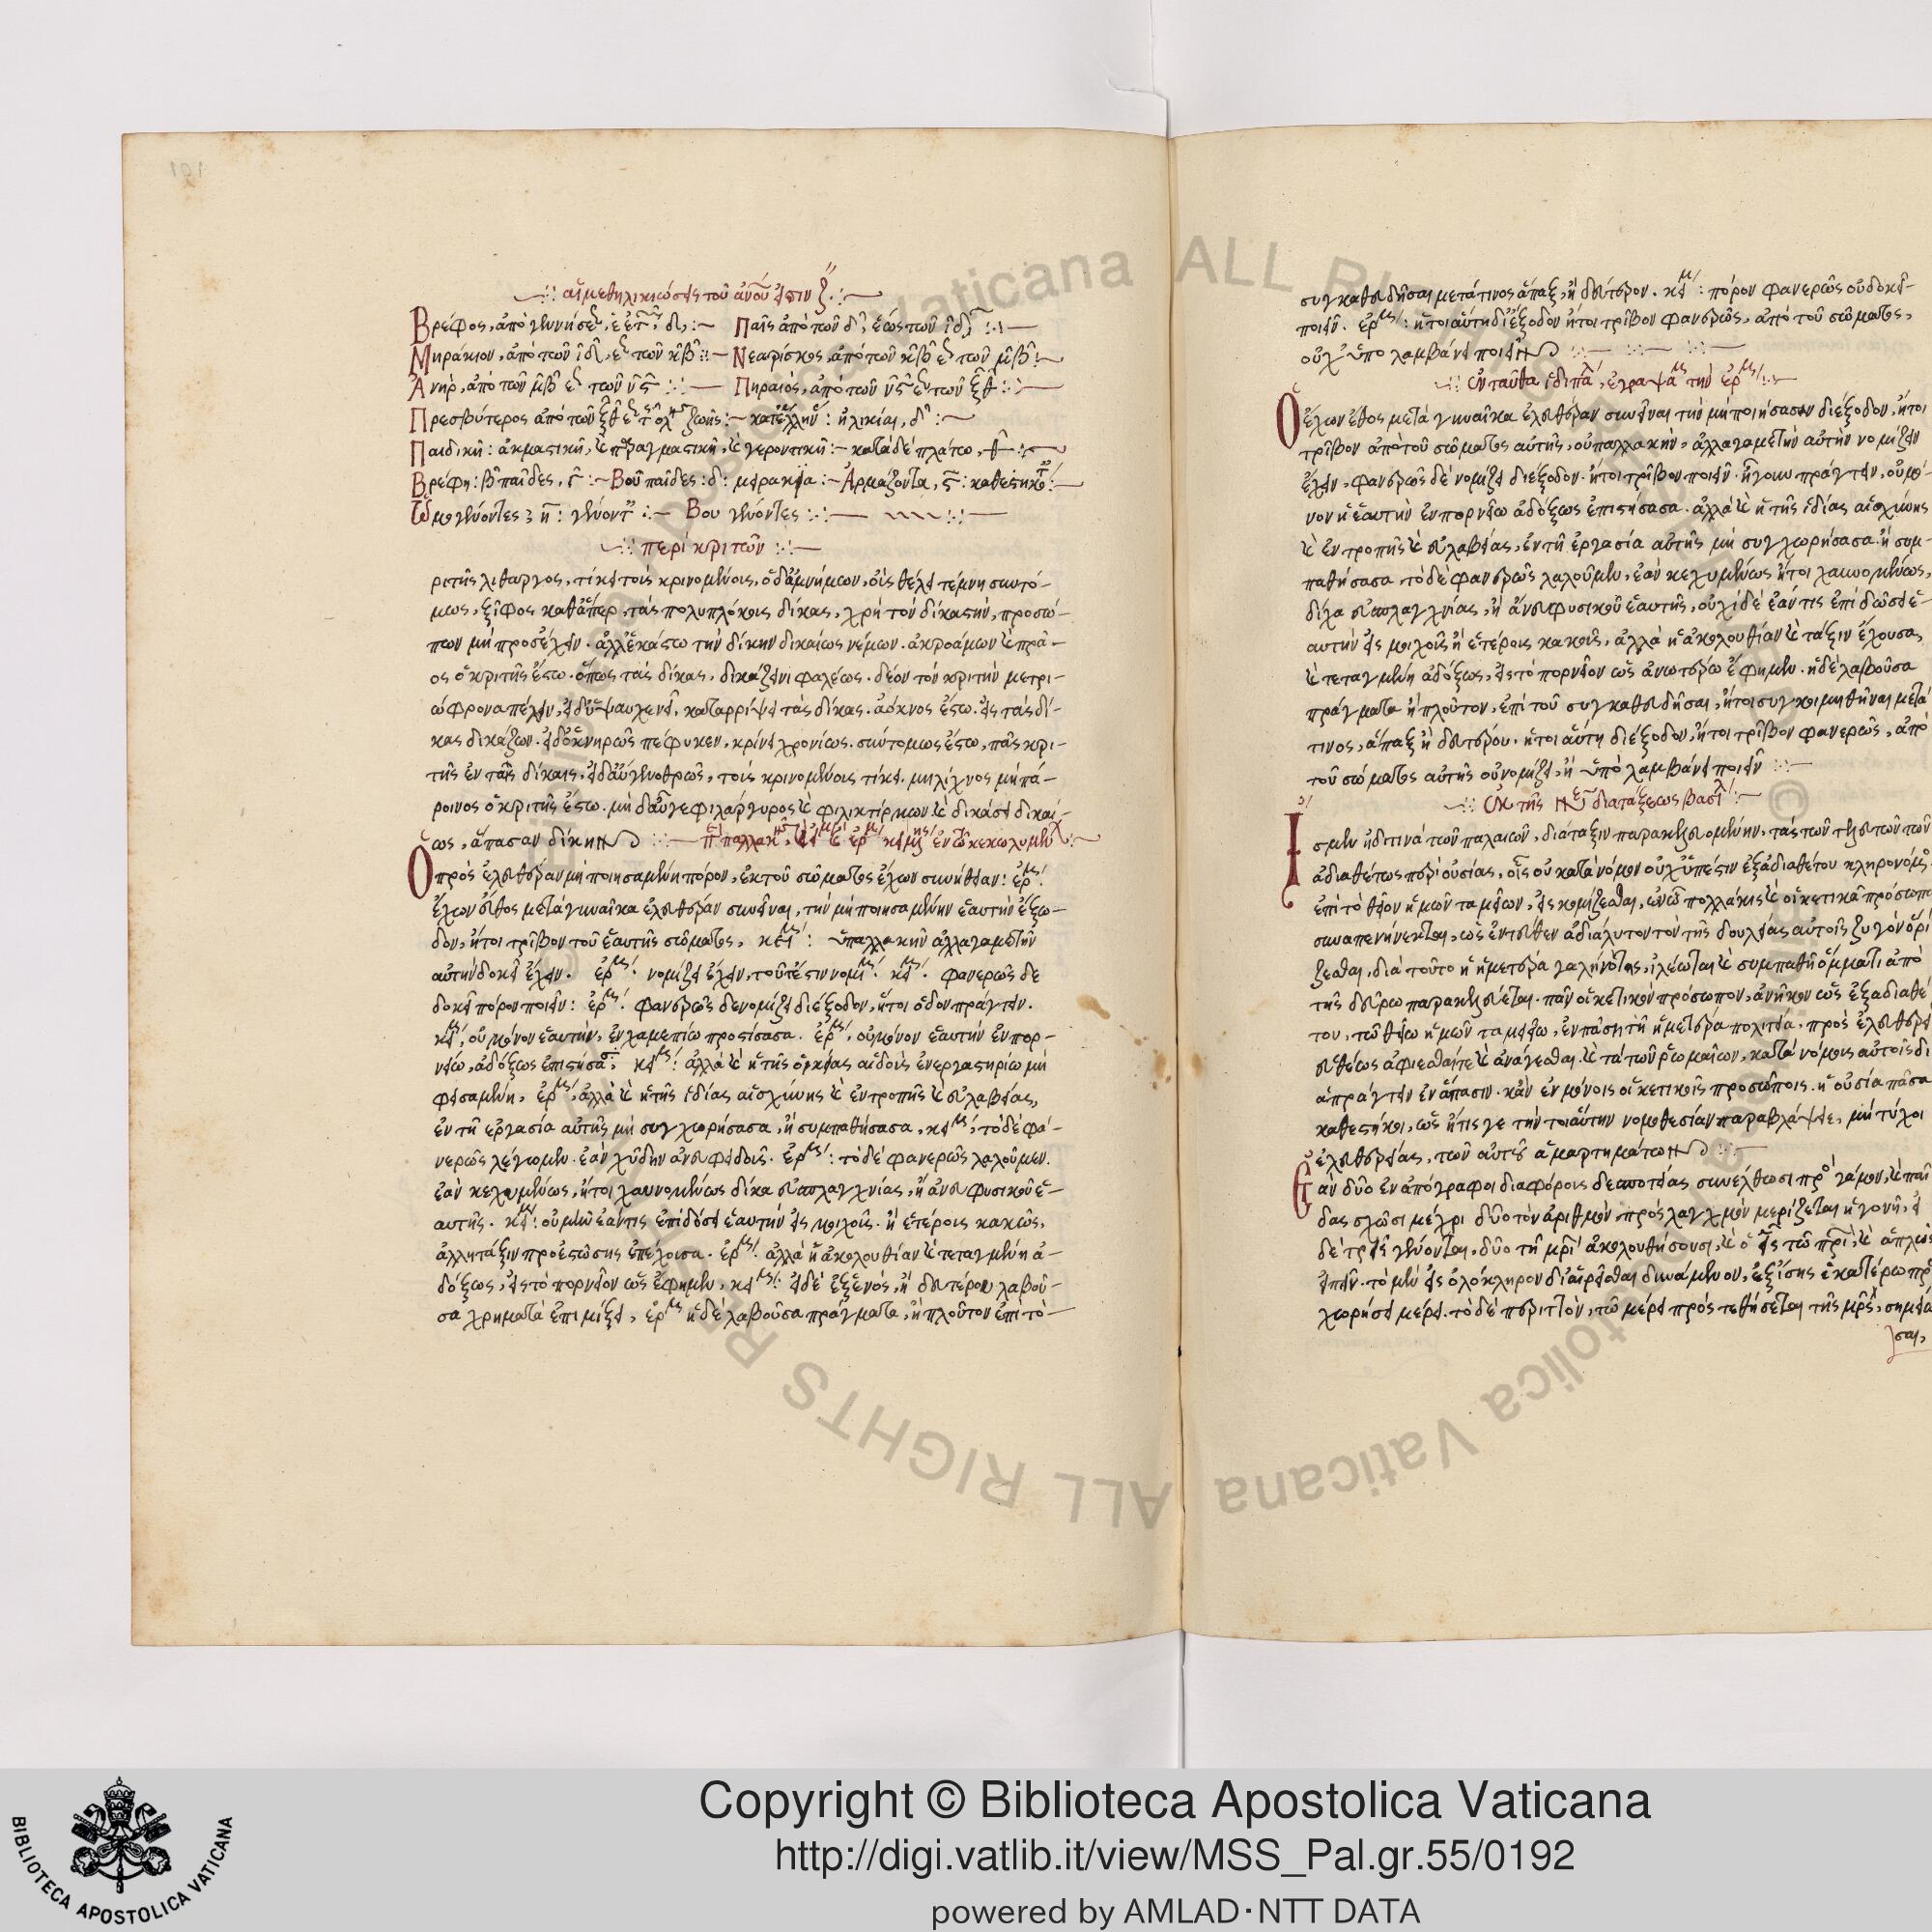 αἱ μεθηλικιώσεις τοῦ ἀνοῦ εἰσιν ζ
Βρέφος, ἀπὸ γεννήσε
Παῖς ἀπὸ τῶν δ, ἕως τῶν ιδ
Μηράκιον, ἀπὸ τῶν ιδ, τῶν κβ
Νεαρίσκος, ἀπὸ τῶν κβ τῶν μβ
Ἀνὴρ, ἀπὸ τῶν μβ τῶν νϛ
Πηραιὸς, ἀπὸ τῶν νϛ τῶν ξθ
Πρεσβύτερος ἀπὸ τῶν ξθ ζωῆς: ἡλικίαι, δ
Παιδικὴ: ἀκμαστικὴ, καὶ γεροντικὴ: κατὰ δὲ πλάτω
Βρέφη: β παῖδες, Βου παῖδες: δ: μειρακια: Ἀρμάζοντα, ϛ:
Ὠμογένοντες η: Βου γένοντες
περὶ κριτῶν
ριτῆς λιθαργος, τίκει τοῖς κρινομένοις, θέλει τέμνη συντό-
μως, ξίφος καθάπερ, τὰς πολυπλόκοις δίκας, χρὴ τὸν δίκαστην, προσώ-
πων μὴ προσέχειν. ἀλλ' ἑκάστω τὴν δίκην δικαίως νέμων. ἀκροάμων καὶ πρᾶ-
ος ὁ κριτῆς ἔστω. ὅπως τὰς δίκας, δέον τὸν κριτὴν μετρι-
ώφρονα πέλειν, καταρρίψει τὰς δίκας. ἀόκνος ἔστω. εἰς τὰς δί-
κας δικάζων. πέφυκεν, κρίνει χρονίως. συντομως ἔστω, πᾶς κρι-
τῆς ἐν ταῖς δίκαις, τοῖς κρινομένοις τίκει. μηλίχνος μὴ πά-
ροινος ὁ κριτῆς ἔστω. φιλάργυρος καὶ φιλικτίρμων καὶ δικάσει δικαί-
ως, ἅπασαν δίκην
Ὁ πρὸς ἐλευθέραν μὴ ποιησαμένη πόρον, ἐκ τοῦ σώματος ἔχων συνήθειαν: ἑρμ
ἔχων ἔθος μετὰ γυναῖκα ἐλευθέραν συνεῖναι, τὴν μὴ ποιησαμένην ἑαυτὴν ἔξω-
δον, ἤτοι τρίβον τοῦ ἑαυτῆς σώματος, κει: παλλακὴν ἀλλα γαμετὴν
αὐτὴν δοκεῖ ἔχειν. ἑρμ. νομίζει ἔχειν, τουτέστιν νομι. κει. φανερῶς δε
δοκεῖ πόρον ποιεῖν: ἑρμ. φανερῶς δε νομίζει διέξοδον, ἤτοι ὁδον πράγτειν.
κει, οὐ μόνον ἑαυτὴν, ἐν χαμεπίω προεστίσασα. ἑρμ, οὐ μόνον ἑαυτὴν ἐν πορ-
νείω, ἀδόξως ἐπιστήσα: κει: ἀλλὰ καὶ ἡ τῆς οἰκείας αἰδοῦς ἐν εργαστηρίω μὴ
φεισαμένη, ἑρμ, ἀλλὰ καὶ ἡ τῆς ἰδίας αἰσχύνης καὶ ἐντροπῆς καὶ εὐλαβείας,
ἐν τῆ ἐργασία αὐτῆς μὴ συγχωρήσασα, ἢ συμπαθήσασα, κει, τὸ δὲ φα-
νερῶς λέγομεν. ἐὰν χύδην ἀνευ φειδοῦς. ἑρμ: τὸ δὲ φανερῶς λαλοῦμεν.
ἐὰν κεχυμένως, ἤτοι χαυνομένως δίχα εὐσπλαγχνίας, ἢ ἀνευ φυσικοῦ ἑ-
αυτῆς. κει: οὐ μὴν ἐὰν τις ἐπιδόσει ἑαυτὴν εἰς μοιχοῖς. ἢ ἑτέροις κακῶς,
ἀλλη τάξιν προεστώσης ἐπέχοισα. ἑρμ. ἀλλὰ ἡ ἀκολουθίαν καὶ τεταγμένη ἀ-
δόξως, εἰς τὸ πορνεῖον ὡς ἔφημεν, κει: εἰ δὲ ἐξ ἑνὸς, ἢ δευτέρου λαβοῦ-
σα χρηματὰ ἐπιμίξει, ἑρμ ἡ δὲ λαβοῦσα πράγματα, ἢ πλοῦτον ἐπὶ τὸ-
συγκαθευδῆσαι μετὰ τινος ἅπαξ, ἢ δεύτερον. κει: πόρον φανερῶς οὐ δοκεῖ-
ποιεῖν. ἑρμ: ἤτοι αὕτη διέξοδον ἤτοι τρίβον φανερῶς, ἀπὸ τοῦ σώματος,
οὐχ ὑπολαμβάνει ποιεῖν
ἐνταῦθα ἔγραψα τὴν ἑρμ
Ὁ ἔχων ἔθος μετὰ γυναῖκα ἐλευθέραν συνεῖναι τὴν μὴ ποιήσασαν διέξοδον, ἤτοι
τρίβον ἀπὸ τοῦ σώματος αὐτῆς, οὐ παλλακὴν, ἀλλα γαμετὴν αὐτὴν νομίζειν
ἔχειν, φανερῶς δὲ νομίζει διέξοδον. ἤτοι τρίβον ποιεῖν. ἤγουν πράγτειν, οὐ μό-
νον ἡ ἑαυτὴν ἐν πορνείω ἀδόξως ἐπιστήσασα. ἀλλὰ καὶ ἡ τῆς ἰδίας αἰσχύνης
καὶ ἐντροπῆς καὶ εὐλαβείας, ἐν τῆ ἐργασία αὐτῆς μὴ συγχωρήσασα. ἢ συμ-
παθήσασα. τὸ δὲ φανερῶς λαλοῦμεν, ἐὰν κεχυμένως ἤτοι χαυνομένως,
δίχα εὐσπλαγχνίας, ἢ ἄνευ φυσικοῦ ἑαυτῆς, οὐχὶ δὲ ἐὰν τις ἐπιδώσει ἑ-
αυτὴν εἰς μοιχοῖς ἢ ἑτέροις κακοῖς, ἀλλὰ ἡ ἀκολουθίαν καὶ τάξιν ἔχουσα,
καὶ τεταγμένη ἀδόξως, εἰς τὸ πορνεῖον ὡς ἀνωτέρω ἔφημεν. ἡ δὲ λαβοῦσα
πράγματα ἢ πλοῦτον, ἐπὶ τοῦ συγκαθευδῆσαι, ἤτοι συγκοιμηθῆναι μετὰ
τινος, ἅπαξ ἢ δευτέρου. ἤτοι αὕτη διέξοδον, ἤτοι τρίβον φανερῶς, ἀπὸ
τοῦ σώματος αὐτῆς οὐ νομίζει, ἢ ὑπολαμβάνει ποιεῖν
Ἐκ τῆς διατάξεως βασι
Ἴσμεν ἤδη τινὰ τῶν παλαιῶν, διάταξιν παρακελευομένην, τὰς τῶν τελευτῶν τῶν
ἀδιαθέτως περὶ οὐσίας, οἷς οὐ κατὰ νόμον οὐχ ὕπεστιν ἐξ ἀδιαθέτου κληρονόμο
ἐπὶ τὸ θεῖον ἡμῶν ταμεῖων, εἰς κομίζεσθαι, πολλάκις καὶ οἰκετικὰ πρόσωπα
συναπενήνεκται, ὡς ἐντεῦθεν ἀδιάλυτον τὸν τῆς δουλείας αὐτοῖς ζυγὸν ὁρί
ζεσθαι, διὰ τοῦτο ἡ ἡμετέρα γαλήνότης, ἱλέωται καὶ συμπαθῆ ὄμματι ἀπὸ
τῆς δεῦρω παρακελεύεται. πᾶν οἰκετικὸν πρόσωπον, ἀνῆκον ὡς ἐξ ἀδιαθέ
του, τῶ θείω ἡμῶν ταμείω, ἐν πάση τῆ ἡμετέρα πολιτεία. πρὸς ἐλευθερεί
εὐθέως ἀφίεσθαί τε καὶ ἀνάγεσθαι. καὶ τὰ τῶν ῥωμαίων, κατὰ νόμοις αὐτοῖς δι
ἁπράγτειν ἐν ἅπασιν. κἂν ἐν μόνοις οἰκετικοῖς προσώποις. ἡ οὐσία πᾶσα
καθεστήκοι, ὡς ἤτις γε τὴν τοιαύτην νομοθεσίαν παραβλάψει, μὴ τύχοι
ἐλευθερίας, τῶν αὐτοῦ ἁμαρτημάτων
Ἐὰν δύο ἐναπόγραφοι διαφόροις δεσποτείας συνέλθωσι πρὸ γάμον, καὶ παῖ
δας σχῶσι μέχρι δύο τὸν ἀριθμὸν, πρὸς λαχμὸν μερίζεται ἡ γονὴ, εἰ
δὲ τρεῖς γένονται, δύο τῆ μρὶ ἀκολουθήσουσι, καὶ ὁ εἷς τῶ πρὶ, καὶ ἁπλῶς
εἰπεῖν. τὸ μὲν εἰς ὁλόκληρον διαιρεῖσθαι δυνάμενον, ἐξ ἴσης ἑκατέρω
χωρήσει μέρει. τὸ δὲ περιττὸν, τῶ μέρει πρὸς τεθήσεται τῆς μρς, σημειώ
σαι,
Copyright © Biblioteca Apostolica Vaticana
http://digi.vatlib.it/view/MSS_Pal.gr.55/0192
powered by AMLAD·NTT DATA
BIBLIOTECA APOSTOLICA VATICANA